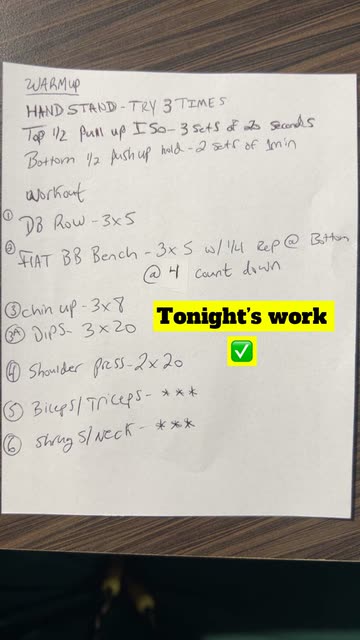 WARMUP
HANDSTAND - TRY 3 TIMES
Top 1/2 pull up ISO - 3 sets of 20 seconds
Bottom 1/2 pushup hold - 2 sets of 1min
Workout
① DB ROW - 3x5
② FlAT BB Bench - 3x5 w/ 1/4 Rep @ Bottom
@ 4 count down
③ chin up - 3x8
③A DIPS - 3x20
Tonight's work
✅
④ Shoulder press - 2x20
⑤ Biceps/Triceps - ***
⑥ Shrugs/Neck - ***